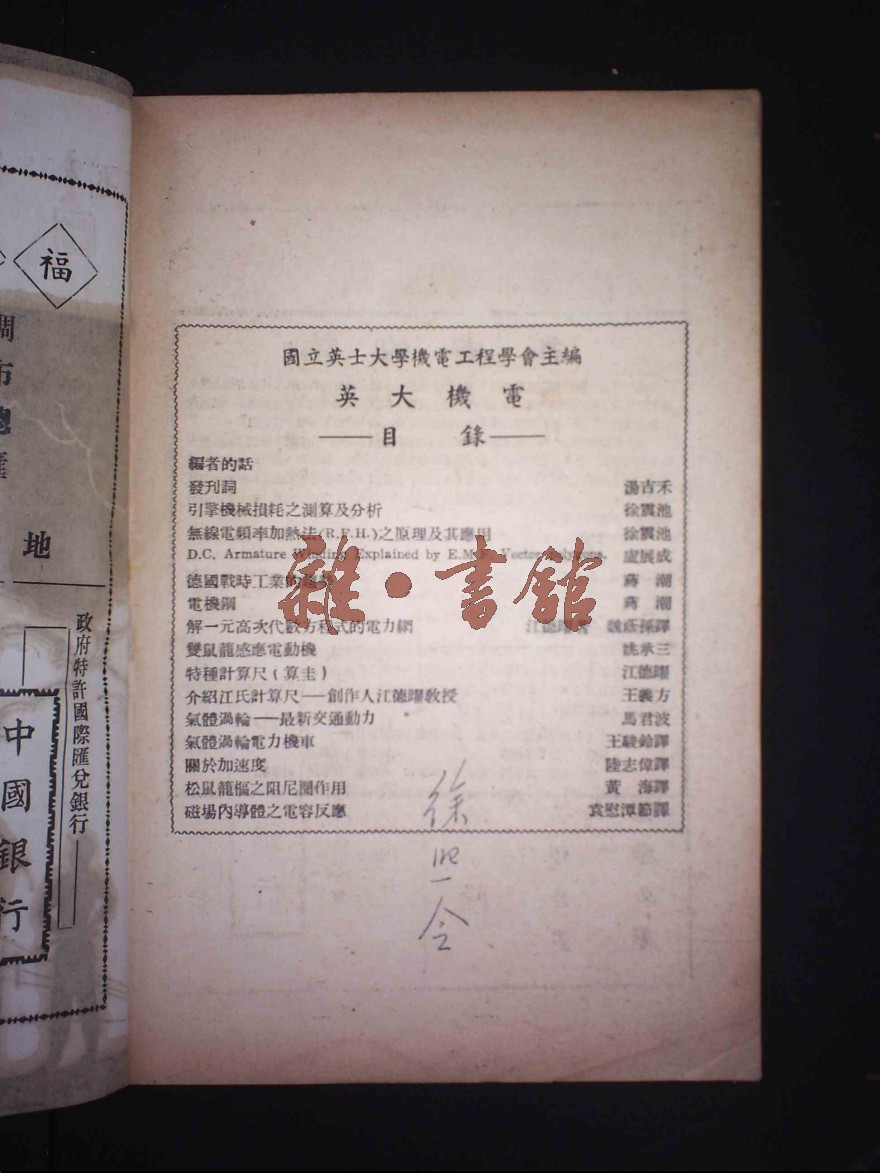 國立英士大學機電工程學會主編
英大機電
——目 錄——
編者的話
發刊詞 湯吉禾
引擎機械損耗之測算及分析 徐震池
無線電頻率加熱法(R.F.H.)之原理及其應用 徐震池
D.C. Armature Winding Explained by E.M.F. Vector Polygons. 盧展成
德國戰時工業的 蔣潮
電機鋼 蔣潮
解一元高次代數方程式的電力網 江德 譯
雙鼠籠感應電動機 姚承三
特種計算尺(算圭) 江德曜
介紹江氏計算尺——創作人江德曜教授 王義方
氣體渦輪——最新交通動力 馬君波
氣體渦輪電力機車 王駿鈴譯
關於加速度 陸志偉譯
松鼠籠樞之阻尼圈作用 黃海譯
磁場內導體之電容反應 袁慰潭節譯
徐
照
令
雜·書館
福
地
政府特許國際匯兌銀行
中國銀行